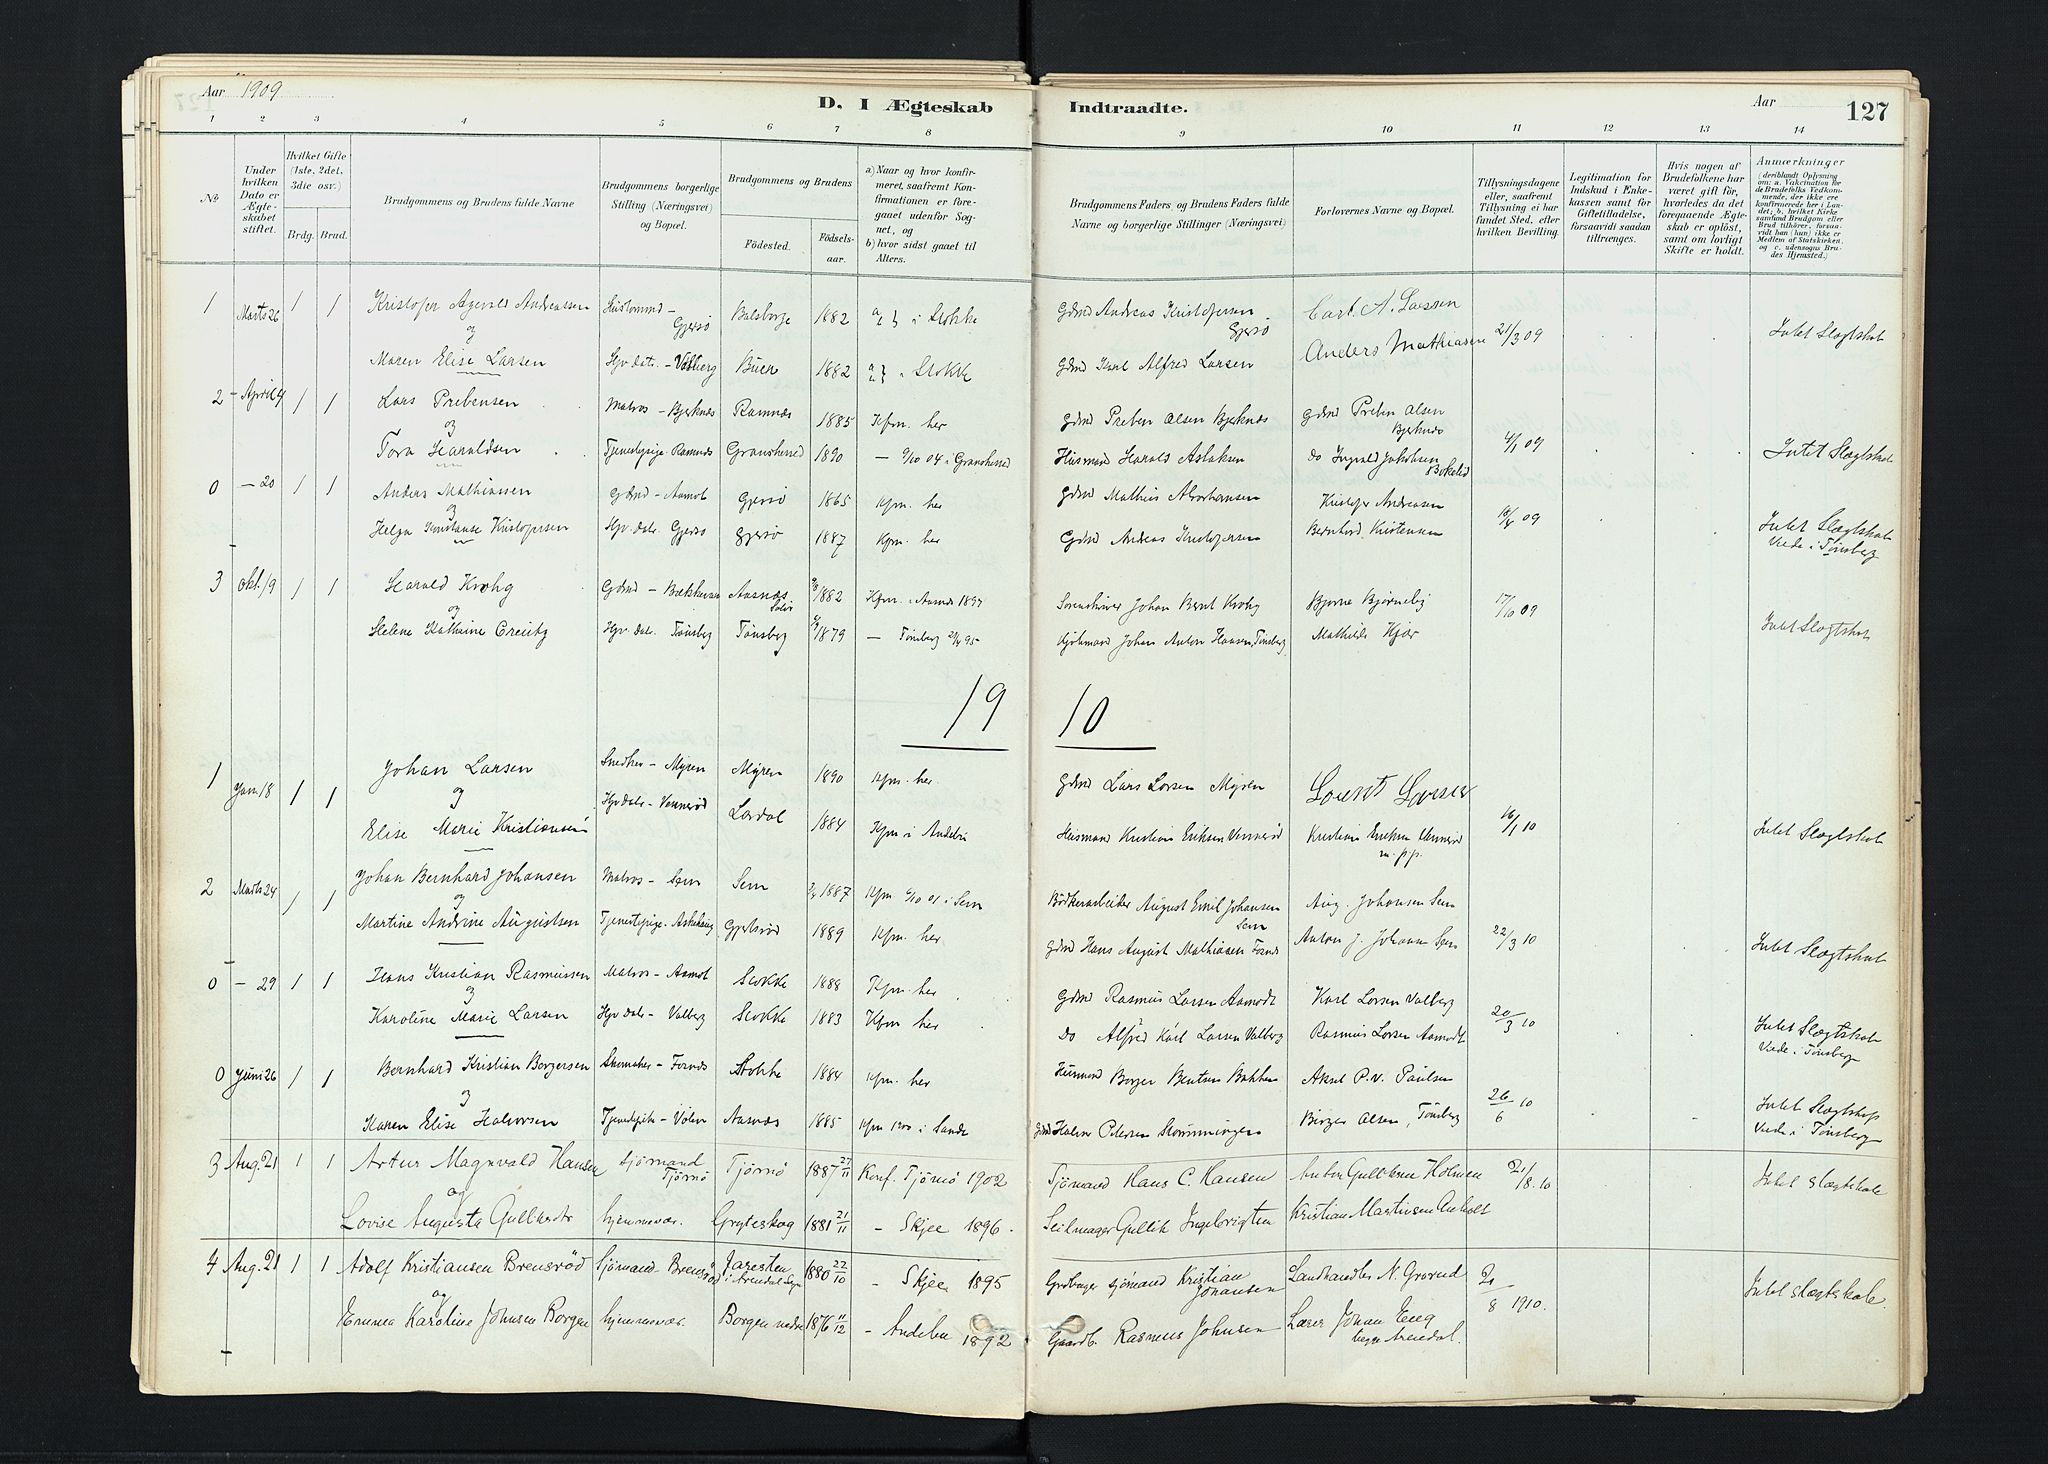 Aar 1909
D. I Ægteskab
Indtraadte.
Aar
127
1 2 3 4 5 6 7 8
9 10 11 12 13 14
No
Under hvilken Dato er Ægteskabet stiftet.
Hvilket Gifte (1ste, 2det, 3die osv.)
Brdg. Brud.
Brudgommens og Brudens fulde Navne
Brudgommens borgerlige Stilling (Næringsvei) og Bopæl.
Brudgommens og Brudens
Födested.
Födselsaar.
a) Naar og hvor konfirmeret, saafremt Konfirmationen er foregaaet udenför Sognet, og
b) hvor sidst gaaet til Alters.
Brudgommens Faders og Brudens Faders fulde Navne og borgerlige Stillinger (Næringsvei)
Forlovernes Navne og Bopæl.
Tillysningsdagene eller, saafremt Tillysning ei har fundet Sted, efter hvilken Bevilling.
Legitimation for Indskud i Enkekassen samt for Giftetilladelse, forsaavidt saadan tiltrænges.
Hvis nogen af Brudefolkene har været gift för, hvorledes da det foregaaende Ægteskab er oplöst, samt om lovligt Skifte er holdt.
Anmærkninger (deriblandt Oplysning om: a. Vakcination for de Brudefolks Vedkommende, der ikke ere konfirmerede her i Landet; b. hvilket Kirkesamfund Brudgom eller Brud tilhörer, forsaavidt han (hun) ikke er Medlem af Statskirken, og c. udensogns Brudes Hjemsted.)
1 Marts 26 1 1 Kristofer Andreassen Gjersø 1882 i Stokke
Gdmd Andreas Kristofersen Gjersø Carl A. Larsen 21/3 09 Intet Slægtskab
og
Maren Elise Larsen Hjv. datr. 1882 i Stokke
Gdmd Karl Alfred Larsen Anders Mathiasen
2 April 1 1 Lars Prebensen Matros - Bjerknes Ramnæs 1885 Kfm. her
Gdmd Preben Olsen Bjerknæs Gdmd Preben Olsen Bjerknæs
og
Tora Haraldsen Tjenestepige - Ramnæs Gransherred 1890 - 9/10 04 i Gransherred
Husmand Harald Aslaksen do Jakobsen 09 Intet Slægtskab
0 - 20 1 1 Anders Mathiassen Gdmd - Aamot Gjersø 1865 Kfm. her
Gdmd Mathias Kristofer Andreasen
og
Helga Konstanse Kristofersen Hjv. datr. Gjersø Gjersø 1887 Kfm. her
Gdmd Andreas Kristofersen Bernhard Kristensen 09 Intet Slægtskab
Viede i Tønsberg
3 Okt. 19 1 1 Harald Krohg Gdmd - Aasnæs Solør 1882 Kfm. i Aasnæs 1897
Sorenskriver Johan Bernt Krohg Bjarne Bjørneby 17/10 09
og
Helene Kathrine Creutz Hjv. datr. Tønsberg Tønsberg 1879 - Tønsberg 95
Kjøbmand Johan Anton Hansen, Tønsberg Mathilde Kjær Intet Slægtskab
19 10
1 Jan. 18 1 1 Johan Larsen Snedker - Myren Myren 1890 Kfm. her
Gdmd Lars Larsen Myren Lorents Larsen
og
Elise Marie Kristiansen Hjv. datr. - Vennerød Lardal 1884 Kfm i Andebu
Husmand Kristian Eriksen Vennerød Kristian Eriksen Vennerød 16/1 10 Intet Slægtskab
m. p.p.
2 Marts 24 1 1 Johan Bernhard Johansen Matros - Sem Sem 1887 Kfm 01 i Sem
Bödkerarbeider August Emil Johansen Sem Aug. Johansen Sem
og
Martine Andrine Augustsen Tjenestepige - Gjelsrød 1889 Kfm. her
Gdmd Hans August Mathiasen Fornæs Anton J. Johansen Sem 22/3 10 Intet Slægtskab
0 - 29 1 1 Hans Kristian Rasmussen Matros - Aamot Stokke 1888 Kfm. her
Gdmd Rasmus Larsen Aamodt Karl Larsen Valberg
og
Karoline Marie Larsen Hjv. datr - Valberg Stokke 1883 Kfm her
Do Alfred Karl Larsen Valberg Rasmus Larsen Aamodt 20/3 10 Intet Slægtskab
Viede i Tønsberg
0 Juni 26 1 1 Bernhard Kristian Borgersen Skomaker - Fornæs Stokke 1884 Kfm. her
Husmand Borger Berntsen Bakken Aksel P. V. Paulsen
og
Karen Elise Halvorsen Tjenestepike - Aasnæs 1885 Kfm 1900 i Sande
Gdmd Halvor Pedersen Birger Olsen, Tønsberg 26/6 10 Intet Slægtskap
Viede i Tønsberg
3 Aug. 21 1 1 Artur Magnvald Hansen Sjømand Tjømø Tjømø 1887 27/11 Konf. Tjømø 1902
Sjømand Hans C. Hansen Anton Gulliksen Holmen 21/8. 10 Intet slægtskab
og
Lovise Augusta Gulliksdtr hjemmevær. Gryteskog 1881 21/11 - Skjee 1896.
Seilmager Gullik Ingebrigtsen Kristian Martinsen Anholt
4 Aug. 21 1 1 Adolf Kristiansen Brensrød Sjømand Brensrød Jaresten i Arendal Sogn 1880 22/10 - Skjee 1895
Grdbruger sjømand Kristian Johansen Landhandler N. Grorud 21/8 1910. Intet slægtskab.
og
Emma Karoline Johnsen Borgen hjemmevær. Borgen nedre 1876 11/12 - Andebu 1892
Gaardb. Rasmus Johnsen Lærer Johan Eeg